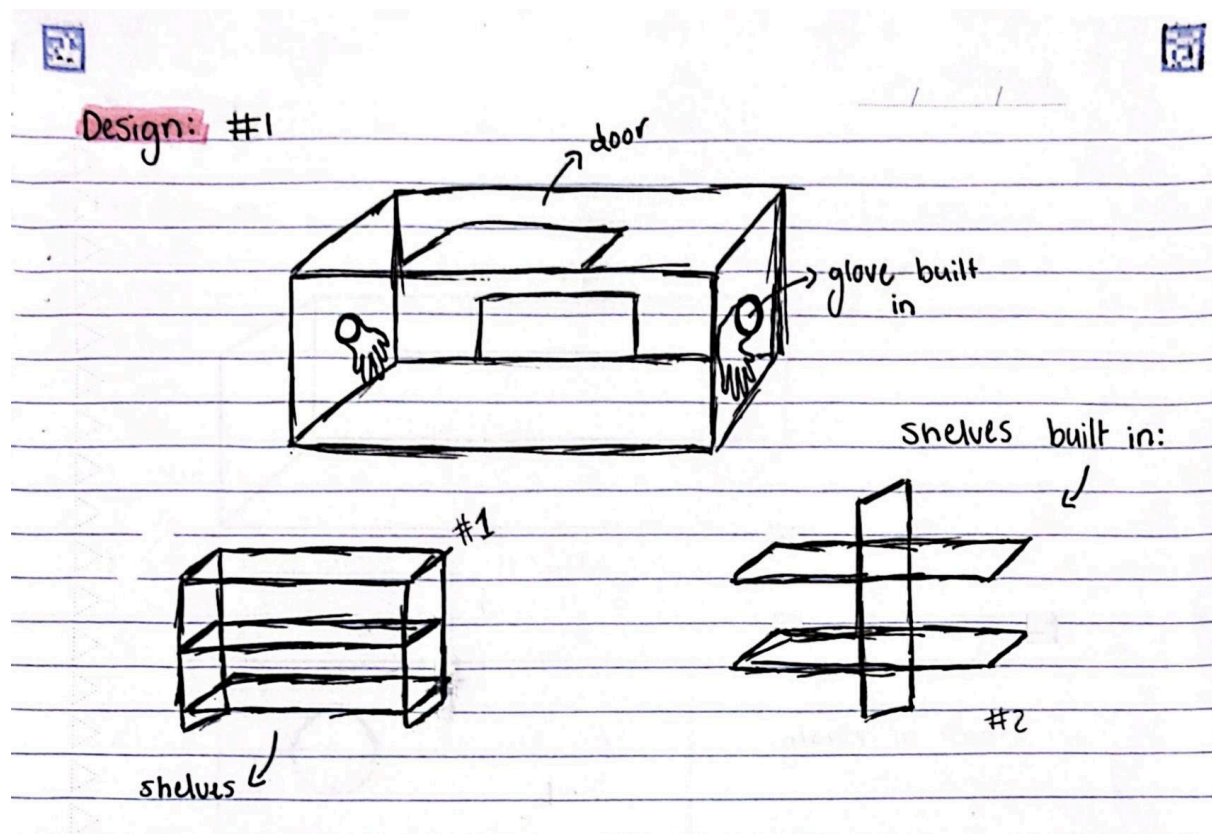 Design: #1
door
glove built
in
shelves built in:
#1
#2
shelves